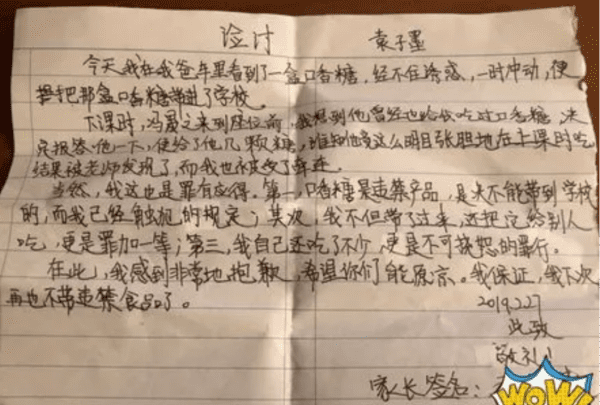 检讨 袁子墨
今天我在我爸车里看到了一盒口香糖，经不住诱惑，一时冲动，便
把那盒口香糖带进了学校。
下课时，冯晨之来到座位前，我想到他曾经也给我吃过口香糖，决
定报答他一下，便给了他几颗糖，谁知他竟这么明目张胆地在上课时吃
结果被老师发现了，而我也被受了牵连。
当然，我这也是罪有应得。第一，口香糖是违禁产品，是决不能带到学校
的，而我已经触犯的规定；其次，我不但带了过来，还把它给别人
吃，更是罪加一等；第三，我自己还吃了不少，更是不可饶恕的罪行。
在此，我感到非常地抱歉，希望你们能原京。我保证，我下次
再也不带违禁食品了。
2019.2.27
此致
敬礼！
家长签名：
WOW!